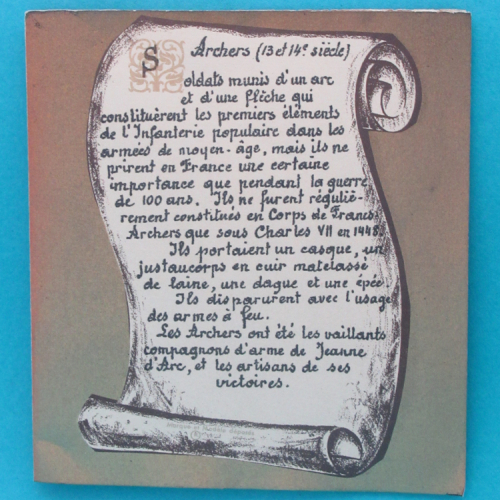 Archers (13 et 14e siècle)
Soldats munis d'un arc
et d'une flèche qui
constituèrent les premiers éléments
de l'Infanterie populaire dans les
armées de moyen-âge, mais ils ne
prirent en France une certaine
importance que pendant la guerre
de 100 ans. Ils ne furent réguliè-
rement constitués en Corps de Francs
Archers que sous Charles VII en 1448.
Ils portaient un casque, un
justaucorps en cuir matelassé
de laine, une dague et une épée.
Ils disparurent avec l'usage
des armes à feu.
Les Archers ont été les vaillants
compagnons d'arme de Jeanne
d'Arc, et les artisans de ses
victoires.